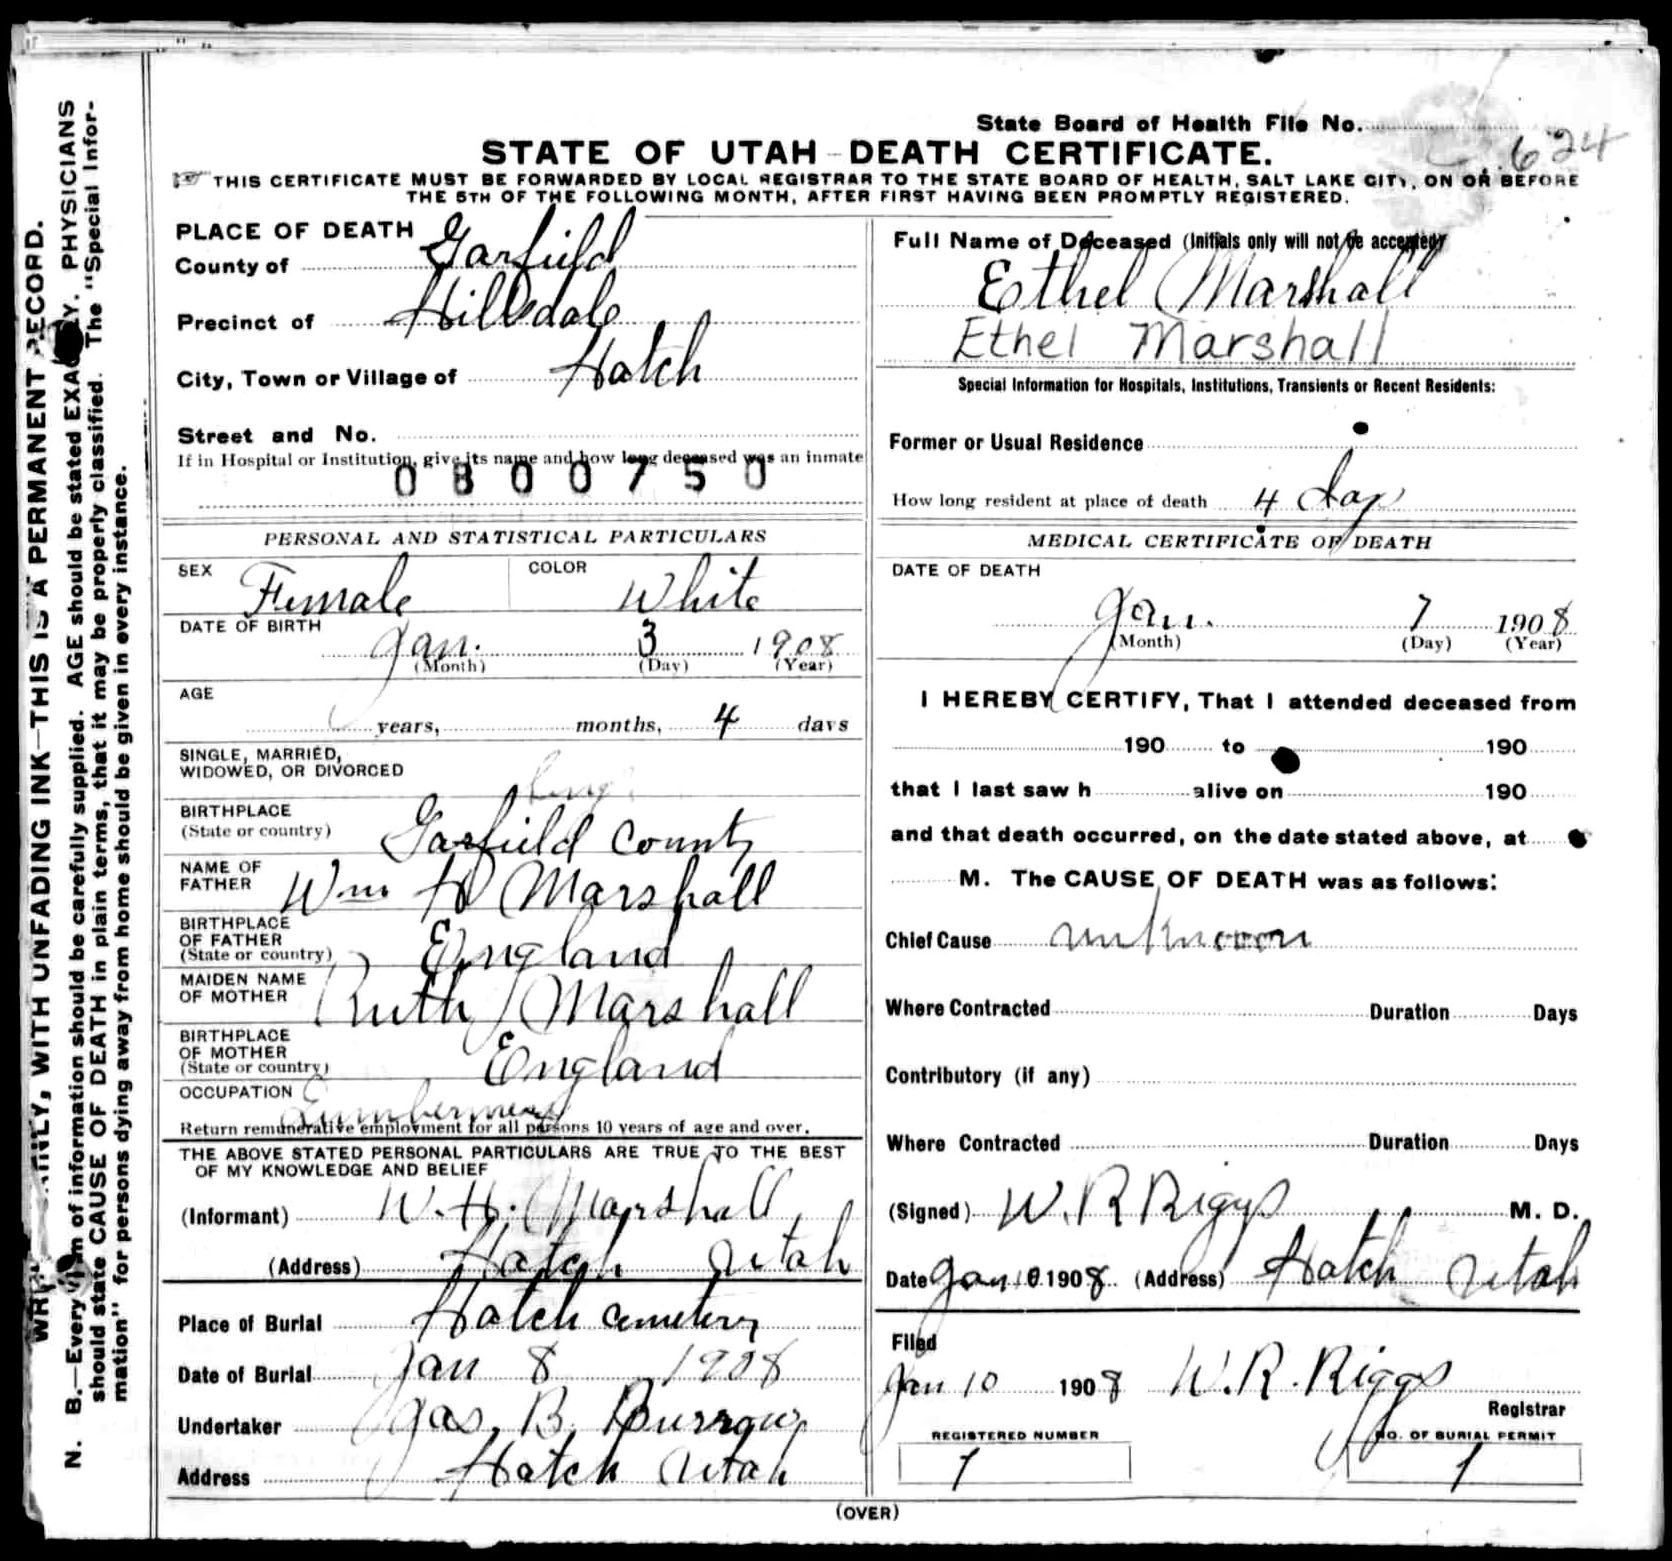 State Board of Health File No. 624
STATE OF UTAH - DEATH CERTIFICATE.
THIS CERTIFICATE MUST BE FORWARDED BY LOCAL REGISTRAR TO THE STATE BOARD OF HEALTH, SALT LAKE CITY, ON OR BEFORE
THE 5TH OF THE FOLLOWING MONTH, AFTER FIRST HAVING BEEN PROMPTLY REGISTERED.
WRITE PLAINLY, WITH UNFADING INK—THIS IS A PERMANENT RECORD.
N. B.—Every item of information should be carefully supplied. AGE should be stated EXACTLY. PHYSICIANS
should state CAUSE OF DEATH in plain terms, that it may be properly classified. The "Special Infor-
mation" for persons dying away from home should be given in every instance.
PLACE OF DEATH
County of Garfield
Precinct of Hillsdale
City, Town or Village of Hatch
Street and No.
If in Hospital or Institution, give its name and how long deceased was an inmate
0800750
PERSONAL AND STATISTICAL PARTICULARS
SEX Female COLOR White
DATE OF BIRTH
Jan. 3 1908
(Month) (Day) (Year)
AGE
years, months, 4 days
SINGLE, MARRIED,
WIDOWED, OR DIVORCED
BIRTHPLACE
(State or country) Garfield County
NAME OF
FATHER Wm H Marshall
BIRTHPLACE
OF FATHER
(State or country) England
MAIDEN NAME
OF MOTHER Ruth Marshall
BIRTHPLACE
OF MOTHER
(State or country) England
OCCUPATION
Return remunerative employment for all persons 10 years of age and over.
THE ABOVE STATED PERSONAL PARTICULARS ARE TRUE TO THE BEST
OF MY KNOWLEDGE AND BELIEF
(Informant) W. H. Marshall
(Address) Hatch Utah
Place of Burial Hatch cemetery
Date of Burial Jan 8 1908
Undertaker Jas. B. Burrow
Address Hatch Utah
Full Name of Deceased (Initials only will not be accepted)
Ethel Marshall
Ethel Marshall
Special Information for Hospitals, Institutions, Transients or Recent Residents:
Former or Usual Residence
How long resident at place of death 4 days
MEDICAL CERTIFICATE OF DEATH
DATE OF DEATH
Jan. 7 1908
(Month) (Day) (Year)
I HEREBY CERTIFY, That I attended deceased from
190 to 190
that I last saw h alive on 190
and that death occurred, on the date stated above, at
M. The CAUSE OF DEATH was as follows:
Chief Cause unknown
Where Contracted Duration Days
Contributory (if any)
Where Contracted Duration Days
(Signed) W. R Riggs M. D.
Date Jan 10 1908 (Address) Hatch Utah
Filed
Jan 10 1908 W. R. Riggs
Registrar
REGISTERED NUMBER NO. OF BURIAL PERMIT
1 1
(OVER)